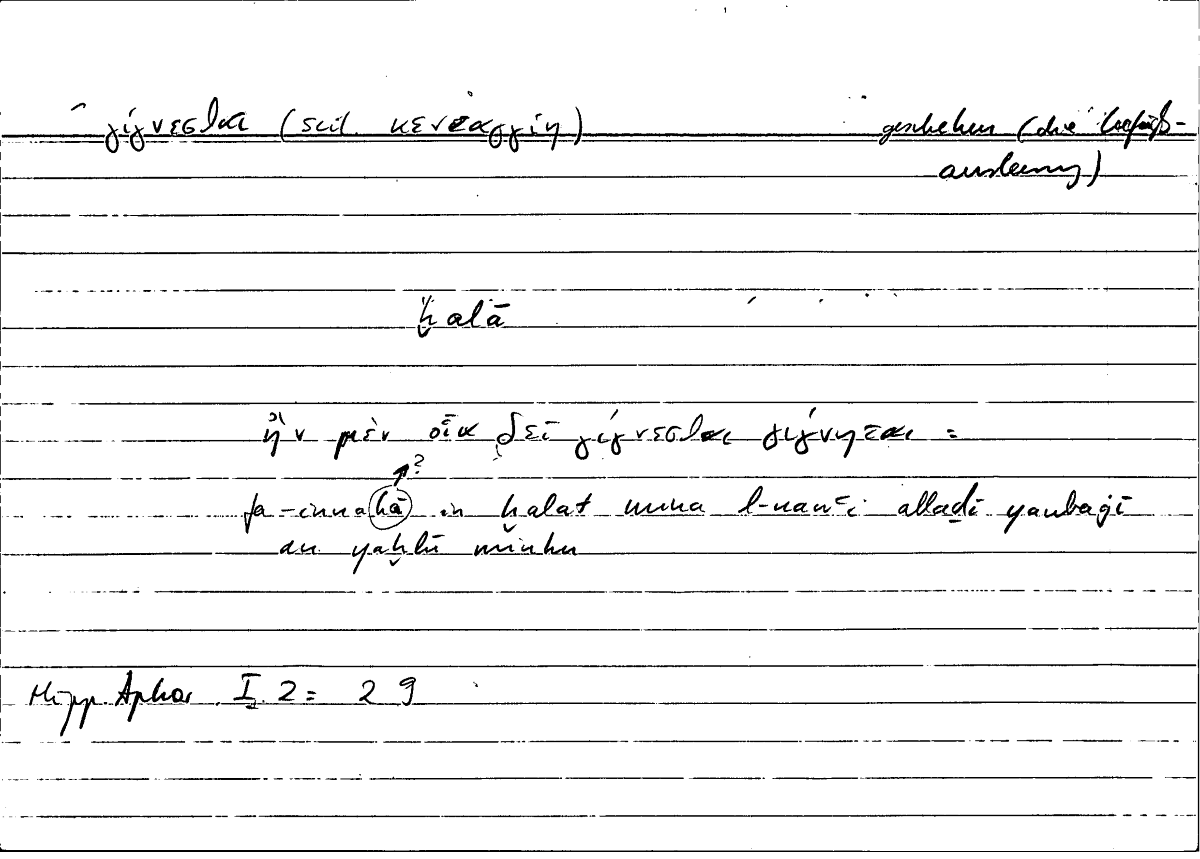 γίγνεσθαι (scil. κενεαγγίη) geschehen (die Gefäß-
ausleerung)
ḫalā
ἢν μὲν οἷα δεῖ γίγνεσθαι γίγνηται =
?
fa-innahā in ḫalat mina l-nauʿi alladī yanbaġī
an yaḫlū minhu
Hipp. Aphor. I 2 = 2 9